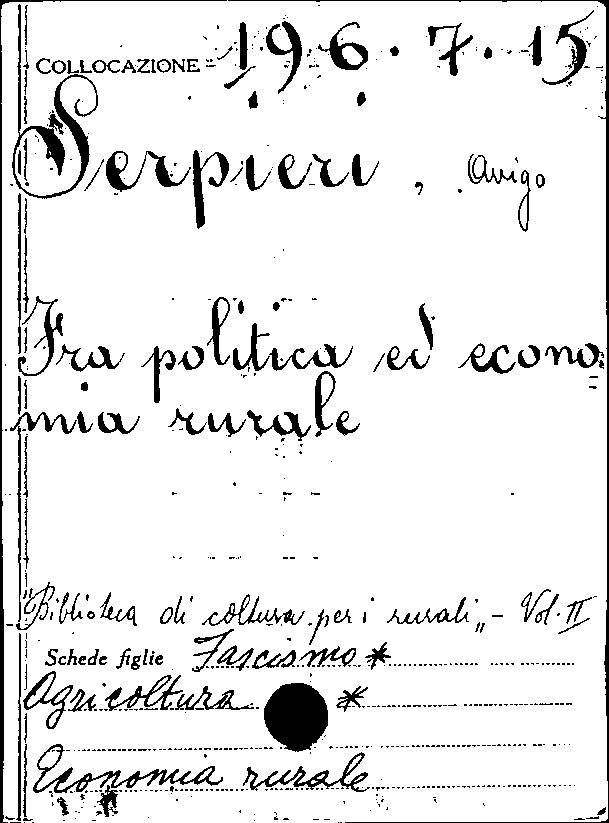 COLLOCAZIONE = 196.7.15
Serpieri, Arrigo
Fra politica ed econo=
mia rurale
"Biblioteca di coltura per i rurali„ - Vol. II
Schede figlie Fascismo *
Agricoltura *
Economia rurale